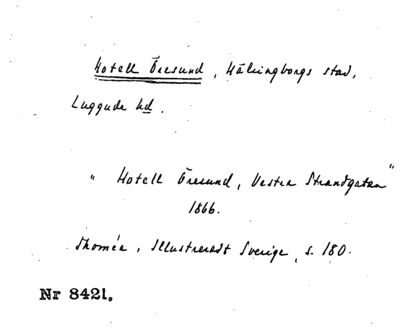 Hotell Öresund, Hälsingborgs stad,
Luggude hd.
"Hotell Öresund, Vestra Strandgatan"
1866.
Thomée, Illustreradt Sverige, s. 180.
Nr 8421.